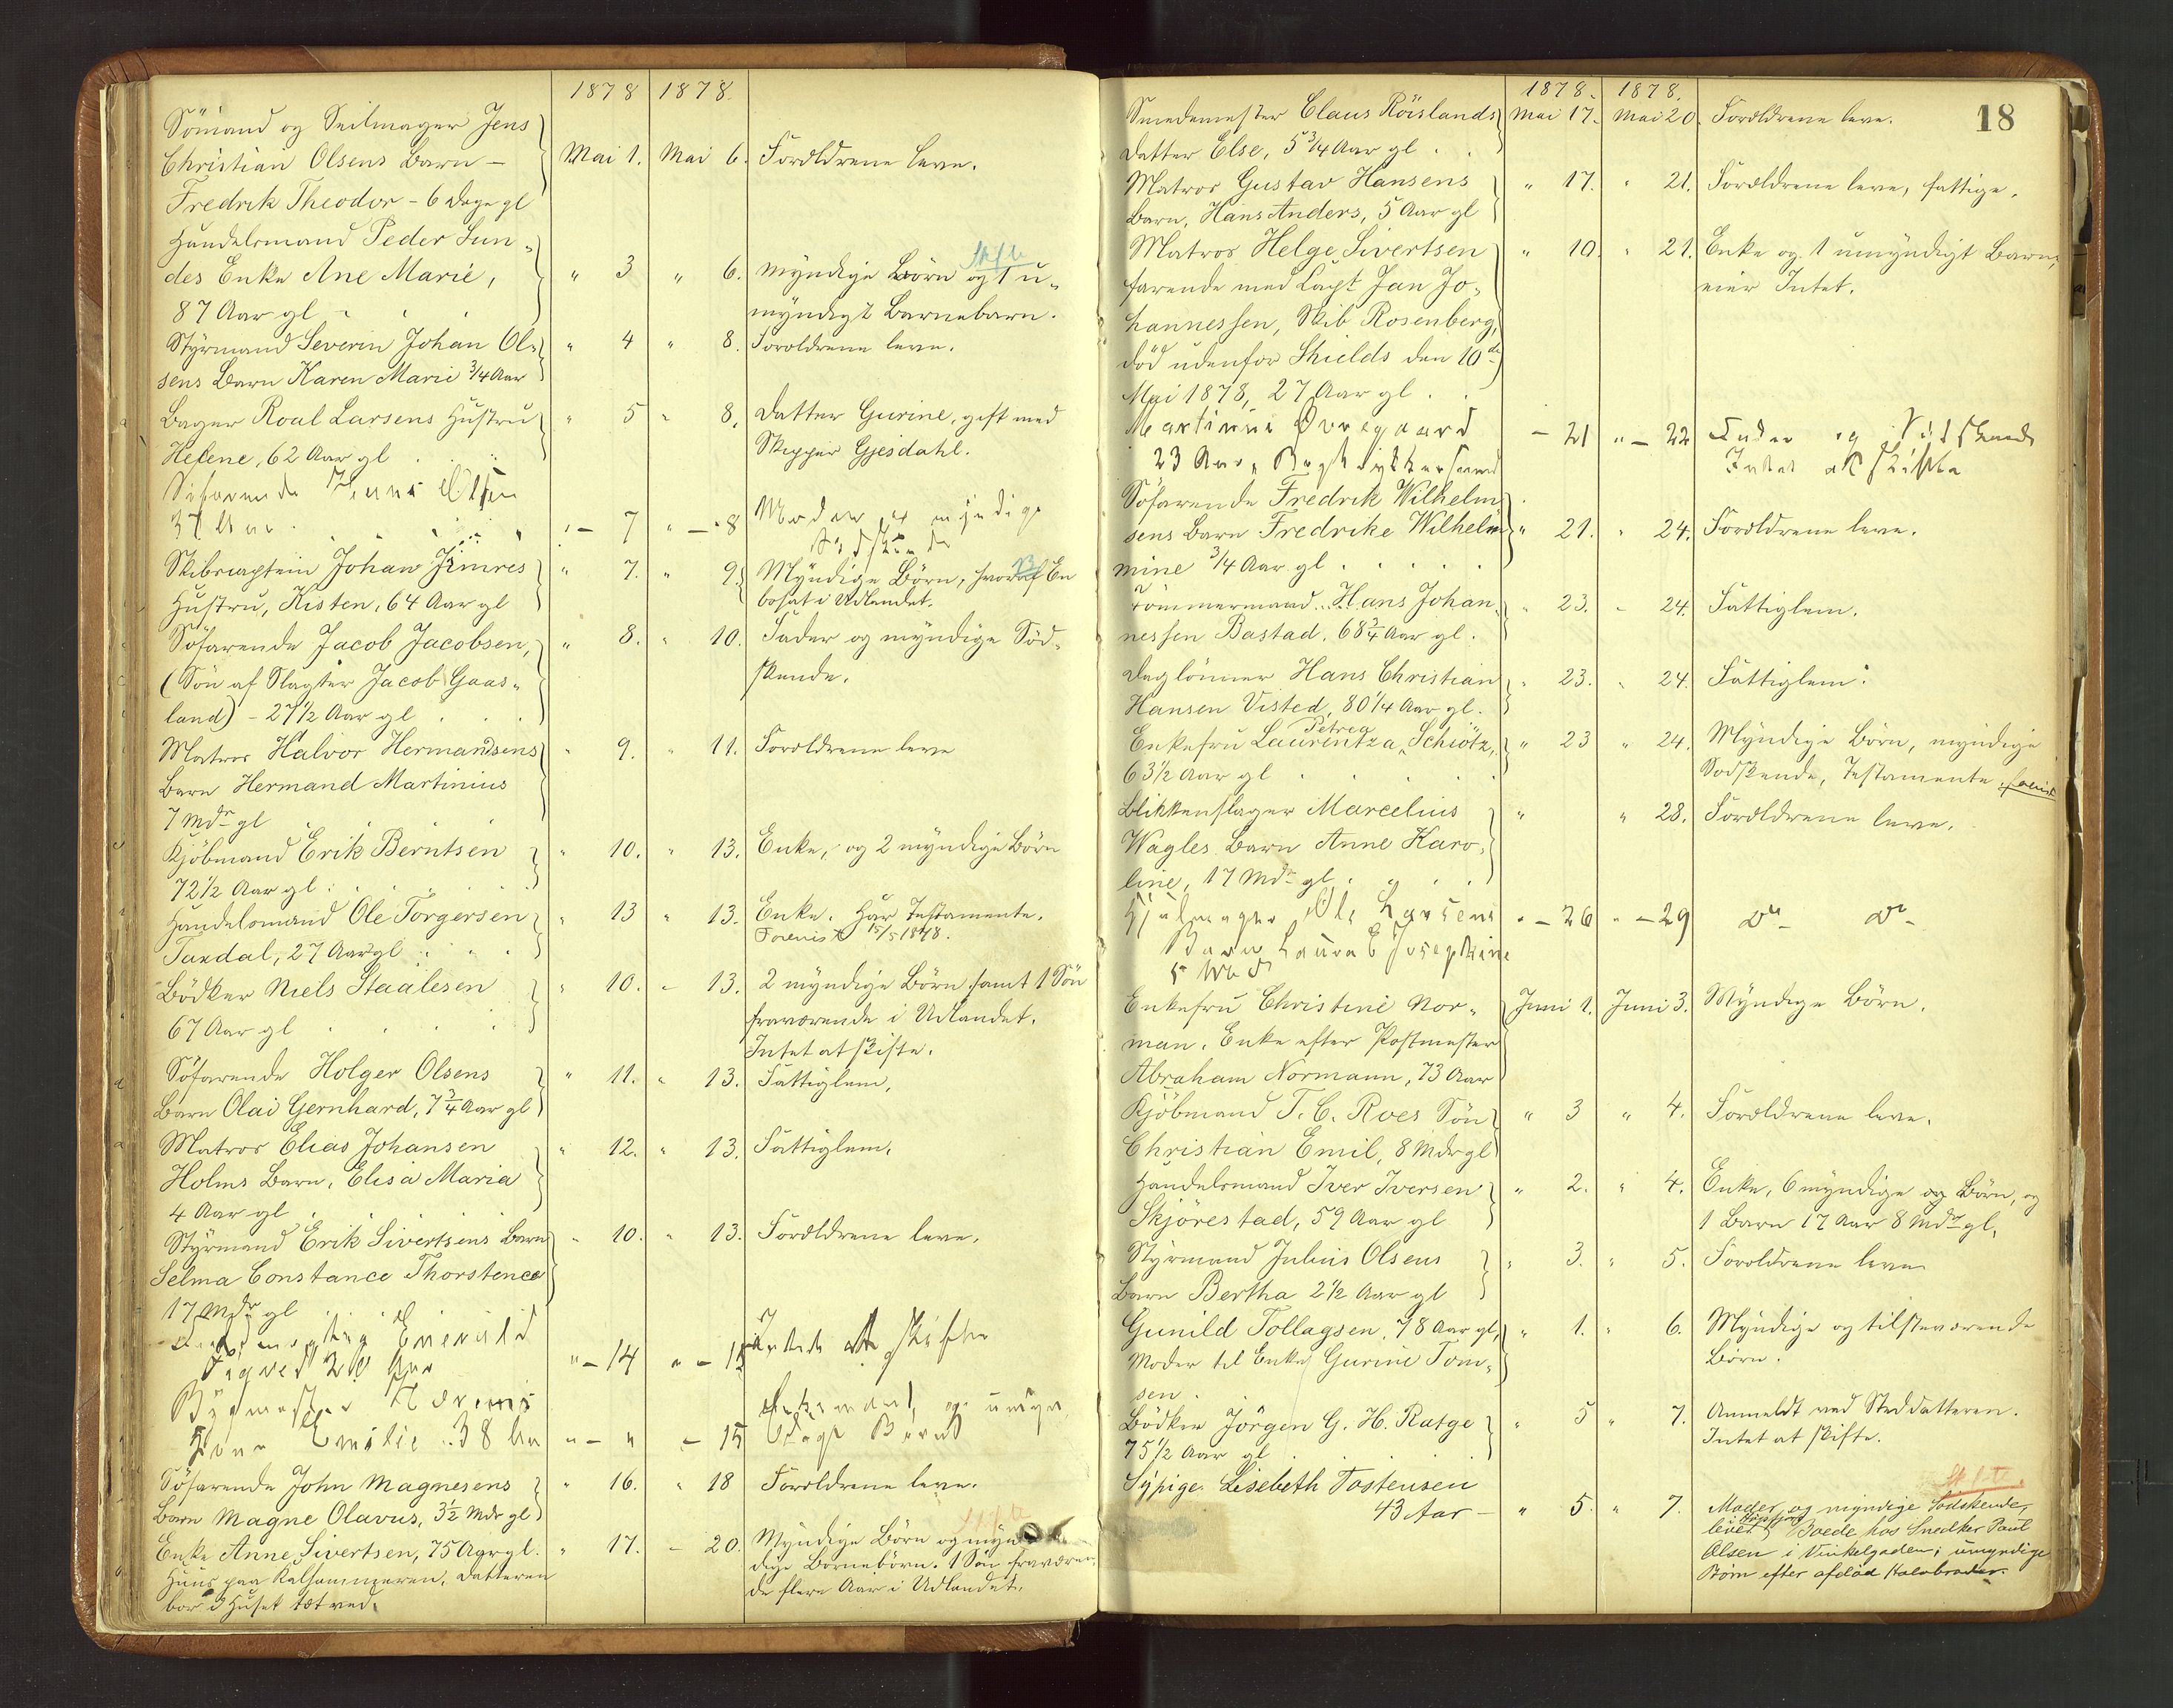 1878 1878.
Sömand og Seilmager Jens
Christian Olsens Barn – Mai 1. Mai 6. Forældrene leve.
Fredrik Theodor – 6 Dage gl
Handelsmand Peder Sun-
des Enke Ane Marie, " 3 " 6. myndige Börn og 1 u-
87 Aar gl myndigt Barnebarn.
Skifte
Styrmand Severin Johan Ol- " 4 " 8. Forældrene leve.
sens Barn Karen Marie 3/4 Aar
Bager Roal Larsens Hustru " 5 " 8. Datter Gurine, gift med
Helene, 62 Aar gl Skipper Gjesdahl.
Söfarende Olsen
37 Aar " – 7 " – 8 Moder og myndige
Södskende
Skibscaptein Johan " 7. " 9. Myndige Börn, hvoraf En
Hustru, Kisten, 64 Aar gl bosat i Udlandet.
Söfarende Jacob Jacobsen, " 8. " 10. Fader og myndige Söd-
(Sön af Slagter Jacob Gaas- skende.
land) – 27 1/2 Aar gl
Matros Halvor Hermandsens " 9. " 11. Forældrene leve
Barn Hermand Martinius
7 Mdr gl
Kjöbmand Erik Berntsen " 10. " 13. Enke, og 2 myndige Börn
72 1/2 Aar gl
Handelsmand Ole Torgersen " 13 " 13. Enke. Har Testamente.
Tandal, 27 Aar gl 15/5 1878.
Bödker Niels Staalesen " 10. " 13. 2 myndige Börn samt 1 Sön
67 Aar gl fraværende i Udlandet.
Intet at skifte.
Söfarende Holger Olsens " 11. " 13. Fattiglem.
Barn Olai Gernhard, 7 3/4 Aar gl
Matros Elias Johansen " 12. " 13. Fattiglem.
Holms Barn, Elisa Maria
4 Aar gl
Styrmand Erik Sivertsens Barn " 10. " 13. Forældrene leve.
Selma Constance Thorstence
17 Mdr gl
" – 14 " – 15 Intet at skifte
20 Aar
Bygmester
Kone Emilie 38 Aar " – " – 15 Barn
Söfarende John Magnesens " 16. " 18 Forældrene leve.
Barn Magne Olavus, 3 1/2 Mdr gl
Enke Anne Sivertsen, 75 Aar gl. " 17. – 20. Myndige Börn og myn-
Huus paa Kalhammeren. Datteren dige Börnebörn. 1 Sön fraværen-
bor i Huset tæt ved. de flere Aar i Udlandet.
18
1878. 1878.
Smedemester Claus Röislands Mai 17. Mai 20. Forældrene leve.
Datter Else, 5 3/4 Aar gl
Matros Gustav Hansens " 17. " 21. Forældrene leve, fattige.
Barn, Hans Anders, 5 Aar gl
Matros Helge Sivertsen " 10. " 21. Enke og 1 umyndigt Barn,
farende med Capt Jan Jo- eier Intet.
hannessen, Skib Rosenberg,
död udenfor Shields den 10de
Mai 1878, 27 Aar gl
Martinus Övregaard – 21 " – 22 Fader og Södskende
23 Aar, Intet at skifte
Söfarende Fredrik Wilhelm-
sens Barn Fredrike Wilhel- " 21. " 24. Forældrene leve.
mine 3/4 Aar gl
Tömmermand Hans Johan- " 23. " 24. Fattiglem.
nessen Bastad. 68 3/4 Aar gl.
Daglönner Hans Christian " 23. " 24. Fattiglem.
Hansen Visted, 80 1/4 Aar gl.
Petrea
Enkefru Laurentza Schiötz, " 23 " 24. Myndige Börn, myndige
63 1/2 Aar gl Södskende, Testamente
Blikkenslager Marcelius " " 28. Forældrene leve.
Wagles Barn Anne Karo-
line, 17 Mdr gl
Hjulmager Ole Larsens " – 26 " – 29 Do Do
Barn Laura E Josephine
5 Md
Enkefru Christine Nor- Juni 1. Juni 3. Myndige Börn.
man. Enke efter Postmester
Abraham Normann, 73 Aar
Kjöbmand T. C. Roes Sön " 3 " 4. Forældrene leve.
Christian Emil, 8 Mdr gl
Handelsmand Iver Iversen " 2. " 4. Enke, 6 myndige og Börn, og
Skjörestad, 59 Aar gl 1 Barn 17 Aar 8 Mdr gl.
Styrmand Julius Olsens " 3. " 5. Forældrene leve
Barn Bertha 2 1/2 Aar gl
Gunild Tollagsen, 78 Aar gl, " 1. " 6. Myndige og tilstæværende
Moder til Enke Gurine Tom- Börn.
sen
Bödker Jörgen G. H. Ratge " 5 " 7. Anmeldt ved Steddatteren.
75 1/2 Aar gl Intet at skifte.
Skifte.
Sypige Lisebeth Tostensen
43 Aar – " 5. " 7. Moder og myndige Södskende,
lever Boede hos Snedker Paul
Olsen i Vinkelgaden; umyndige
Börn efter afdöd Halvbroder.